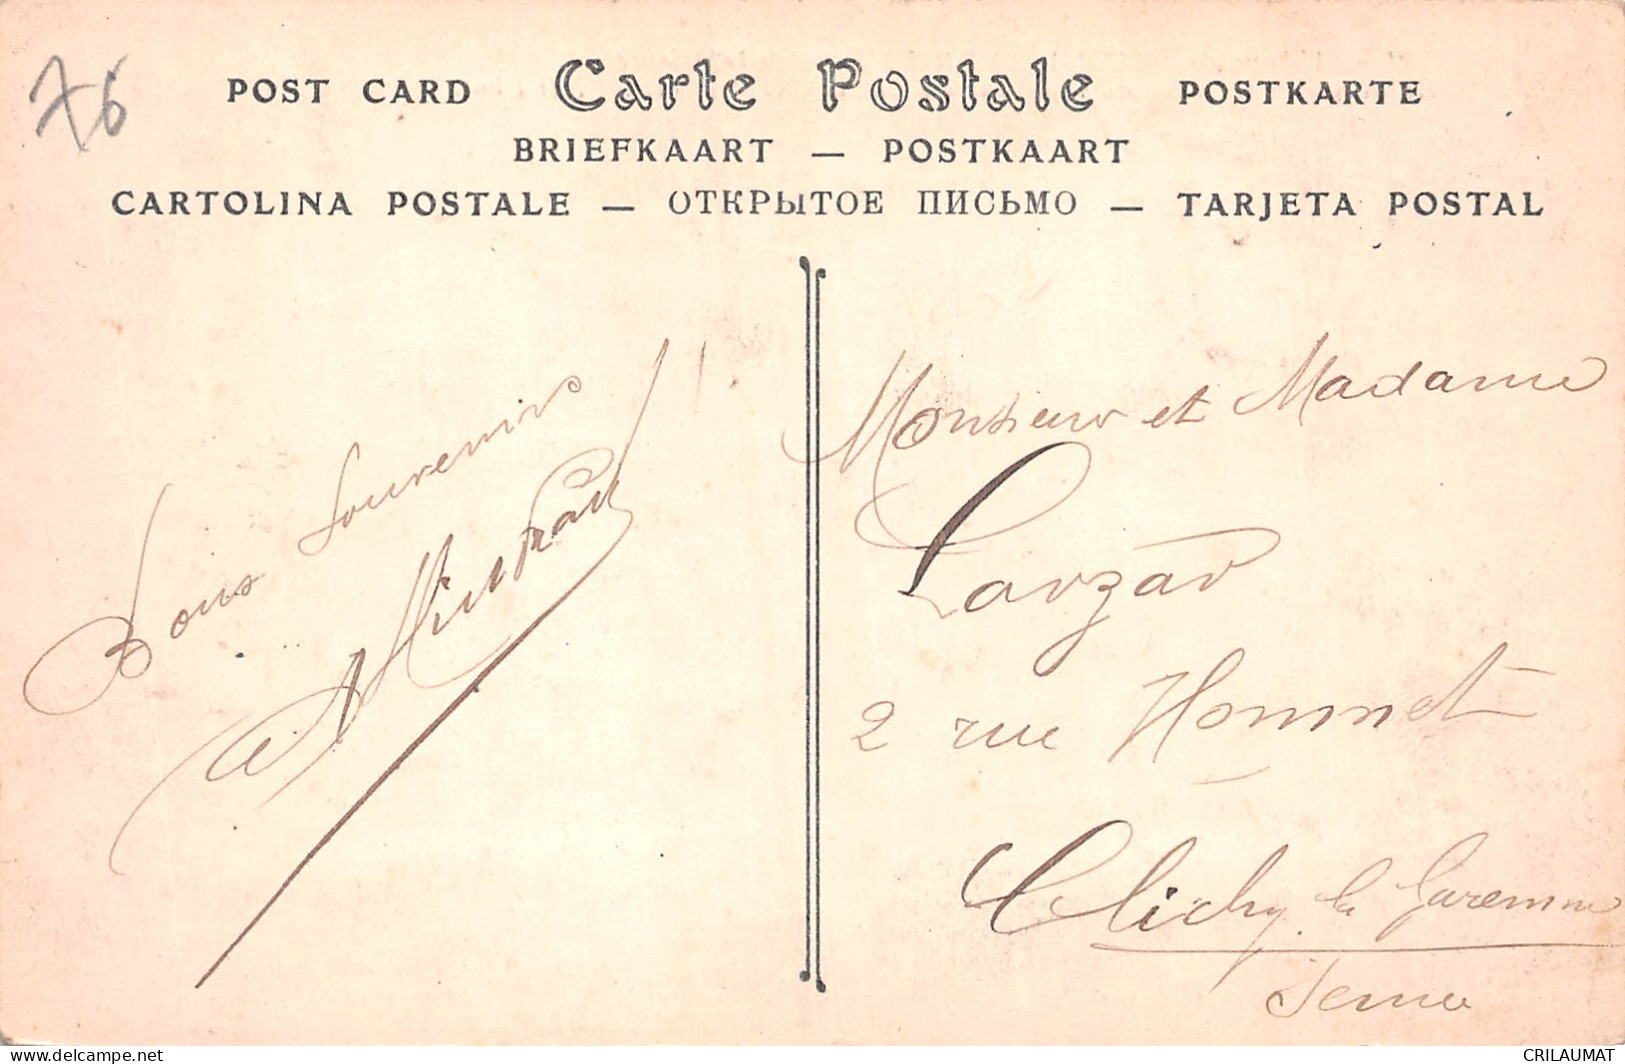 76
POST CARD Carte Postale POSTKARTE
BRIEFKAART — POSTKAART
CARTOLINA POSTALE — ОТКРЫТОЕ ПИСЬМО — TARJETA POSTAL
Bons Souvenirs
Monsieur et Madame
Lavzav
2 rue Hommet
Clichy la Garenne
Seine
delcampe.net
CRILAUMAT